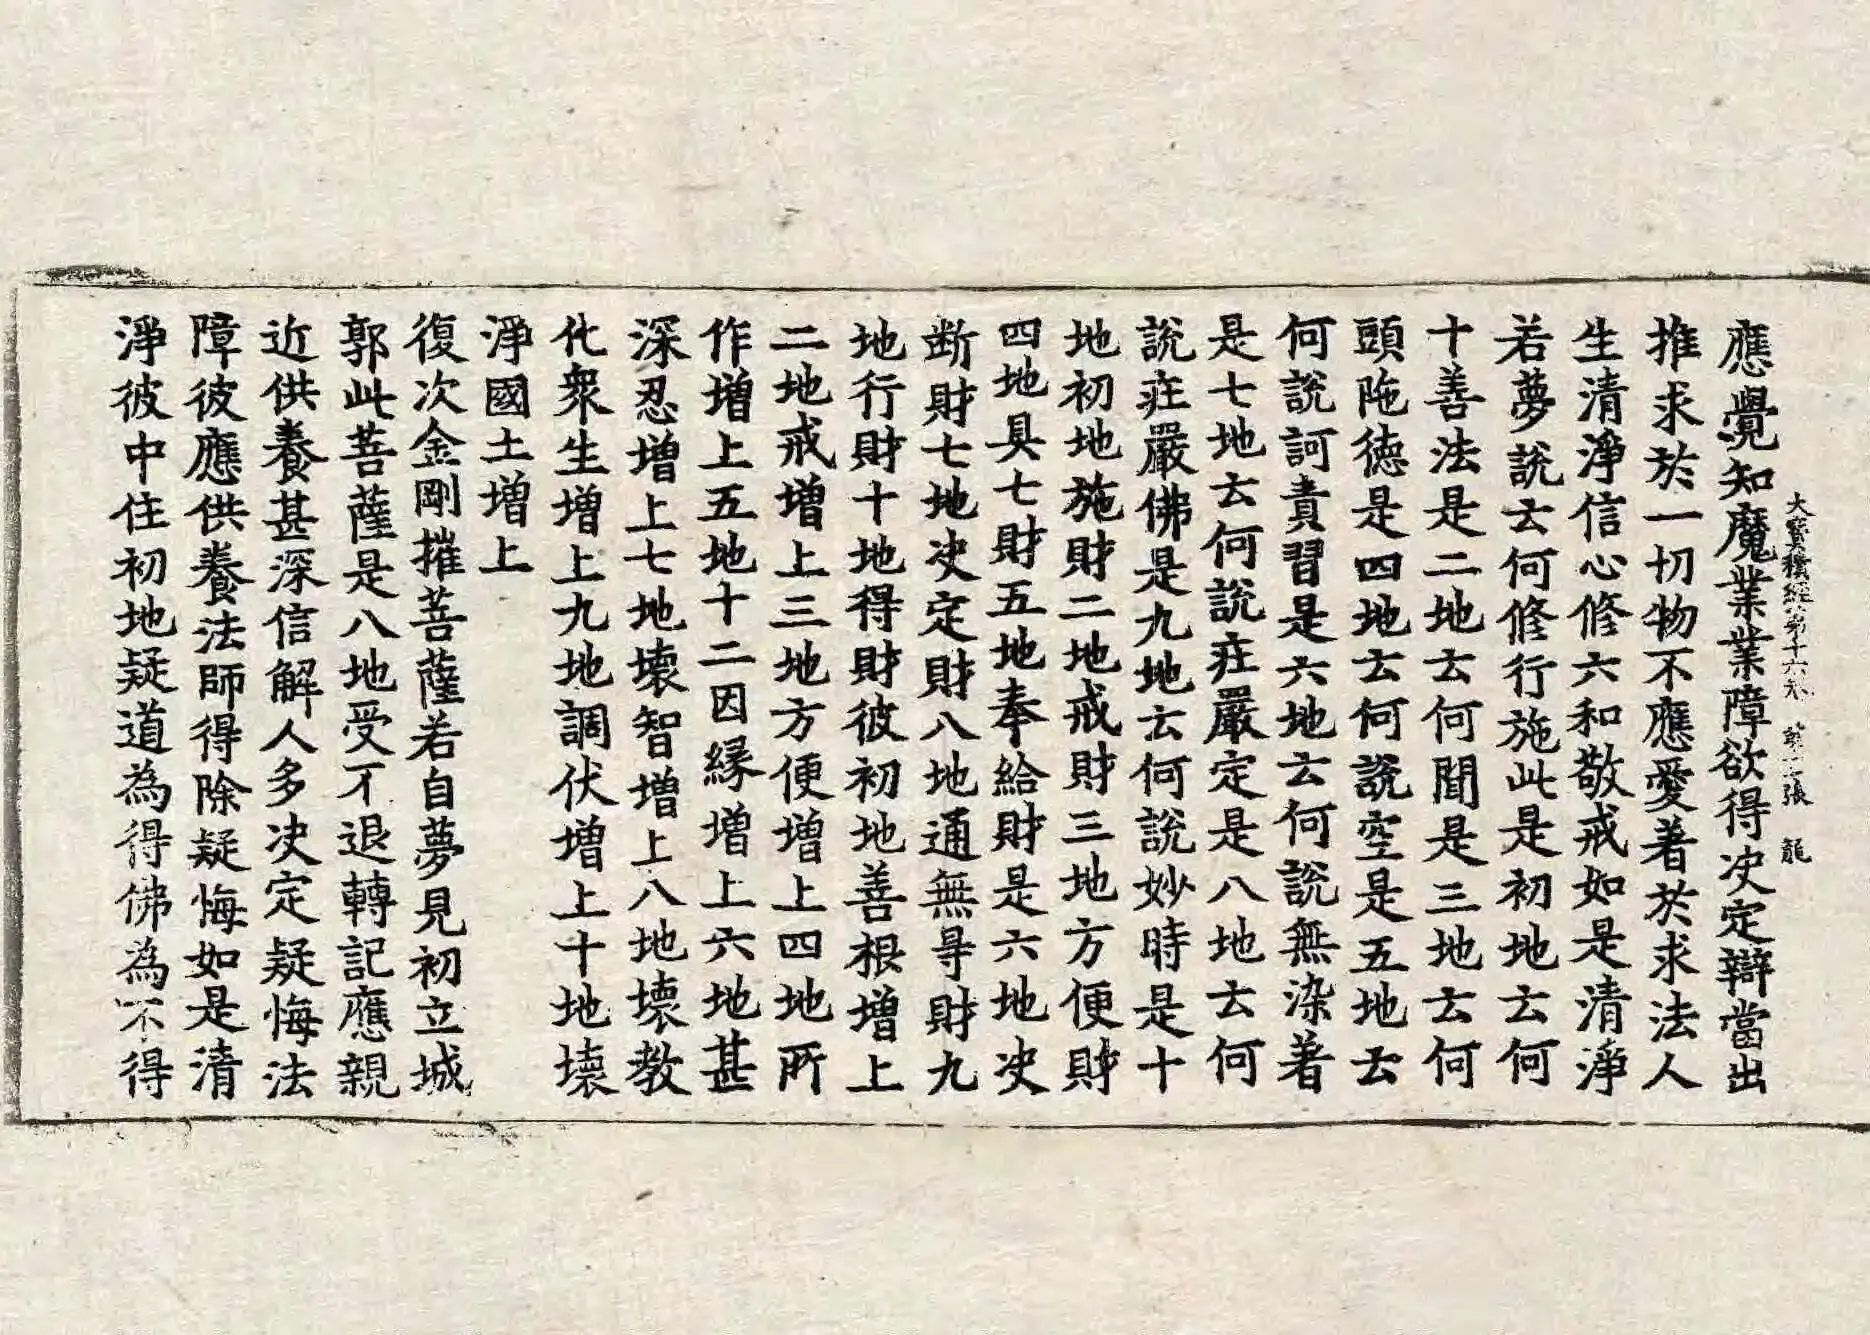 應覺知魔業業障欲得决定辯當出
大寶積經第十六卷 第 張 龍
推求於一切物不應愛著於求法人
生清淨信心修六和敬戒如是清淨
若夢說云何修行施此是初地云何
十善法是二地云何聞是三地云何
頭陁德是四地云何說空是五地云
何說訶責習是六地云何說無染著
是七地云何說莊嚴定是八地云何
說莊嚴佛是九地云何說妙時是十
地初地施財二地戒財三地方便財
四地具七財五地奉給財是六地决
断財七地决定財八地通無㝵財九
地行財十地得財彼初地善根增上
二地戒增上三地方便增上四地所
作增上五地十二因緣增上六地甚
深忍增上七地壞智增上八地壞教
化衆生增上九地調伏增上十地壞
淨國土增上
復次金剛摧菩薩若自夢見初立城
郭此菩薩是八地受不退轉記應親
近供養甚深信解人多决定疑悔法
障彼應供養法師得除疑悔如是清
淨彼中住初地疑道為得佛為不得